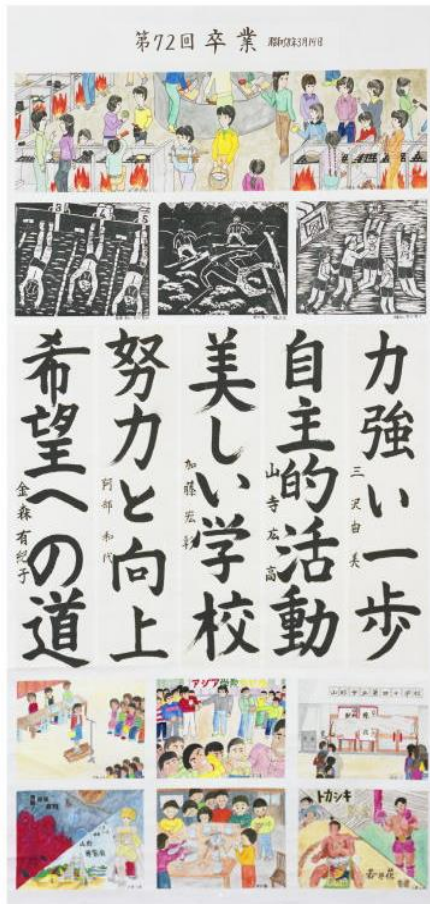 第72回 卒業 昭和58年3月19日
3 4 5
力強い一歩
三沢由美
自主的活動
山寺広高
美しい学校
加藤宏彰
努力と向上
阿部和代
希望への道
金森有紀子
アジア
山形市立第四小学校
トカシキ
若井荻